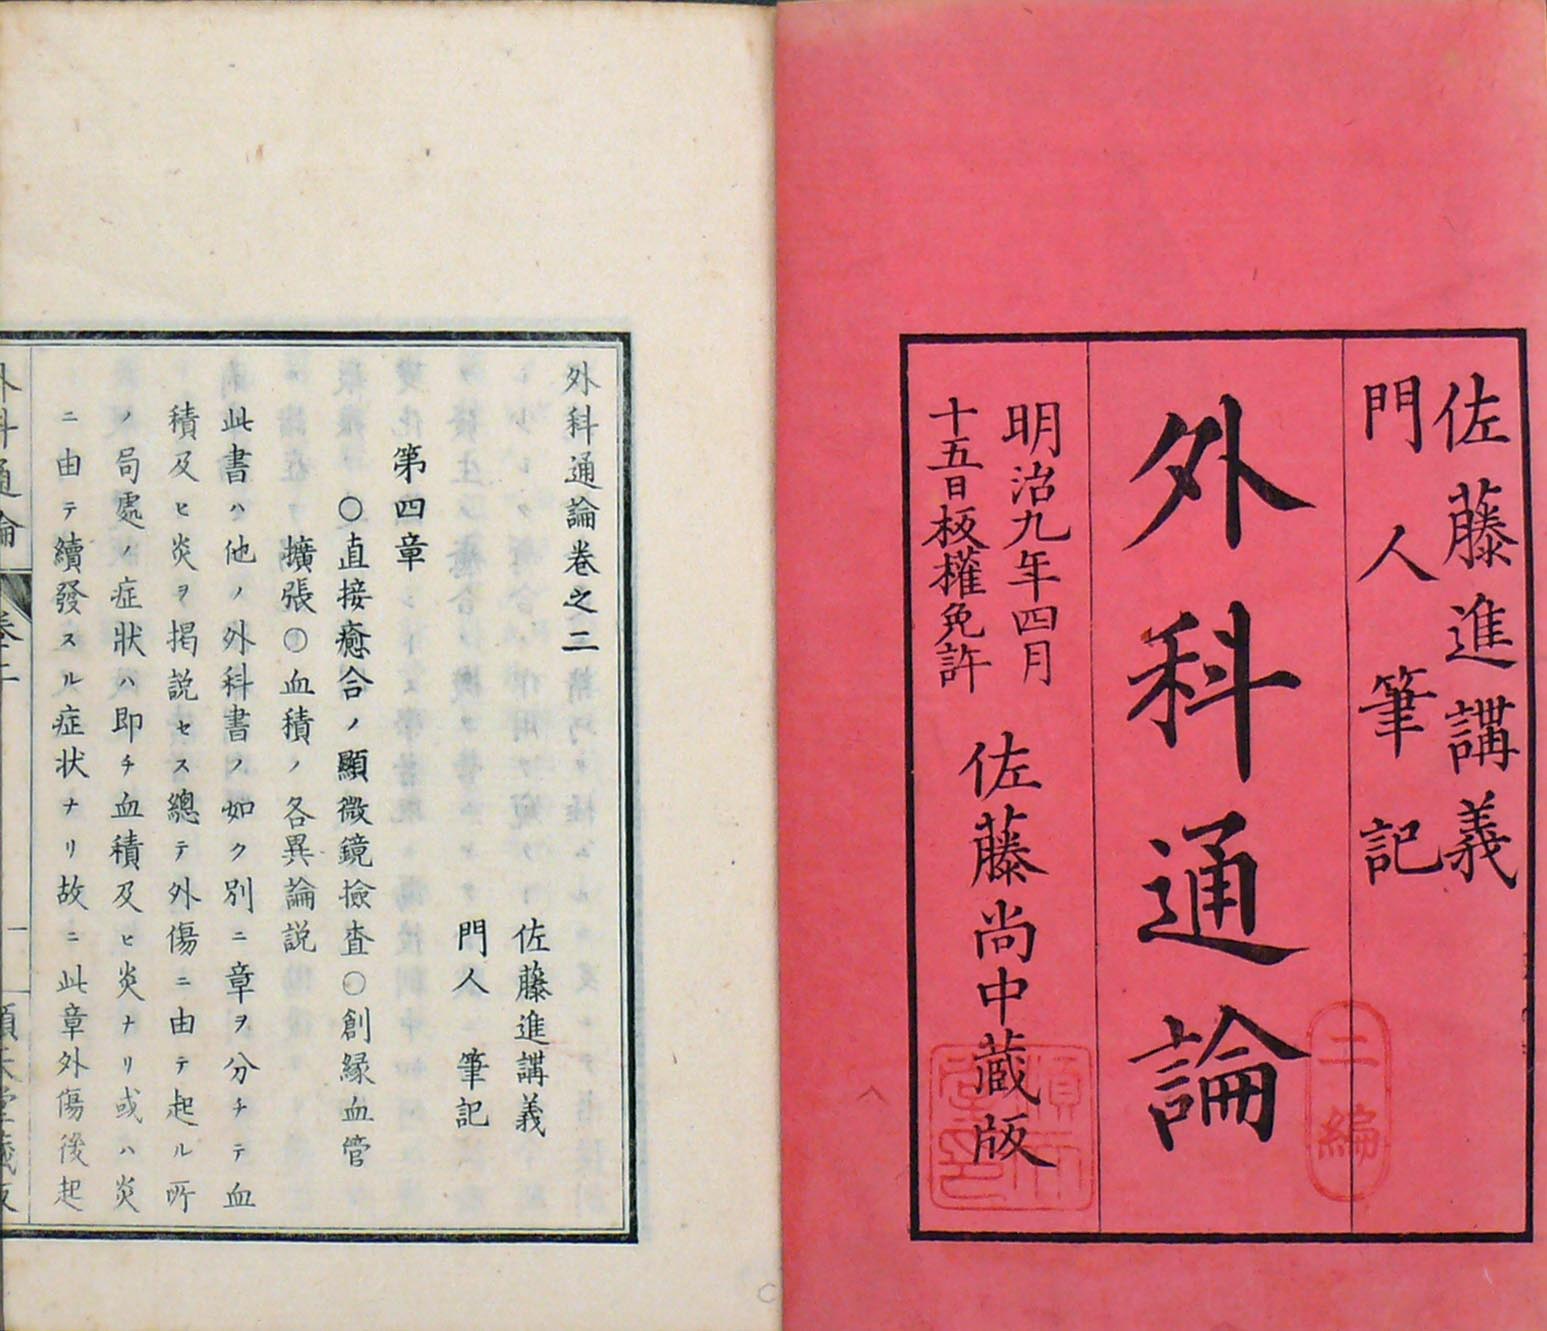 佐藤進講義
門人筆記
外科通論
二編
明治九年四月
十五日板權免許
佐藤尚中蔵版
外科通論卷之二
佐藤進講義
門人筆記
第四章
〇直接癒合ノ顯微鏡撿査〇創縁血管
擴張〇血積ノ各異論説
此書ハ他ノ外科書ノ如ク別ニ章ヲ分チテ血
積及ヒ炎ヲ掲説セス總テ外傷ニ由テ起ル所
ノ局處ノ症狀ハ即チ血積及ヒ炎ナリ或ハ炎
ニ由テ續發スル症状ナリ故ニ此章外傷後起
外科通論
卷二
一
順天堂蔵版